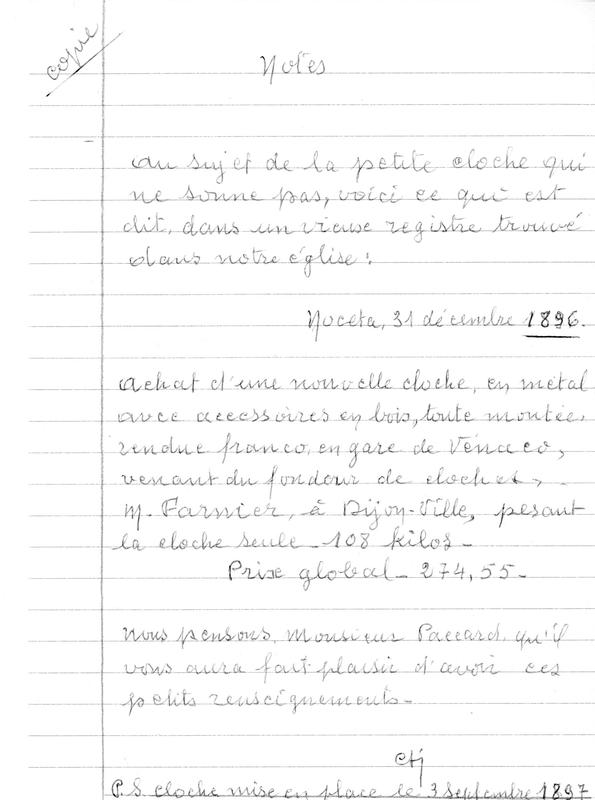 copie
Notes
Au sujet de la petite cloche qui
ne sonne pas, voici ce qui est
dit, dans un vieux registre trouvé
dans notre église :
Noceta, 31 décembre 1896.
Achat d'une nouvelle cloche, en métal
avec accessoires en bois, toute montée,
rendue franco, en gare de Vénaco,
venant du fondeur de cloches,
M. Farnier, à Dijon-Ville, pesant
la cloche seule - 108 kilos -
Prix global - 274,55 -
Nous pensons, Monsieur Paccard, qu'il
vous aura fait plaisir d'avoir ces
petits renseignements -
P.S. cloche mise en place le 3 Septembre 1897